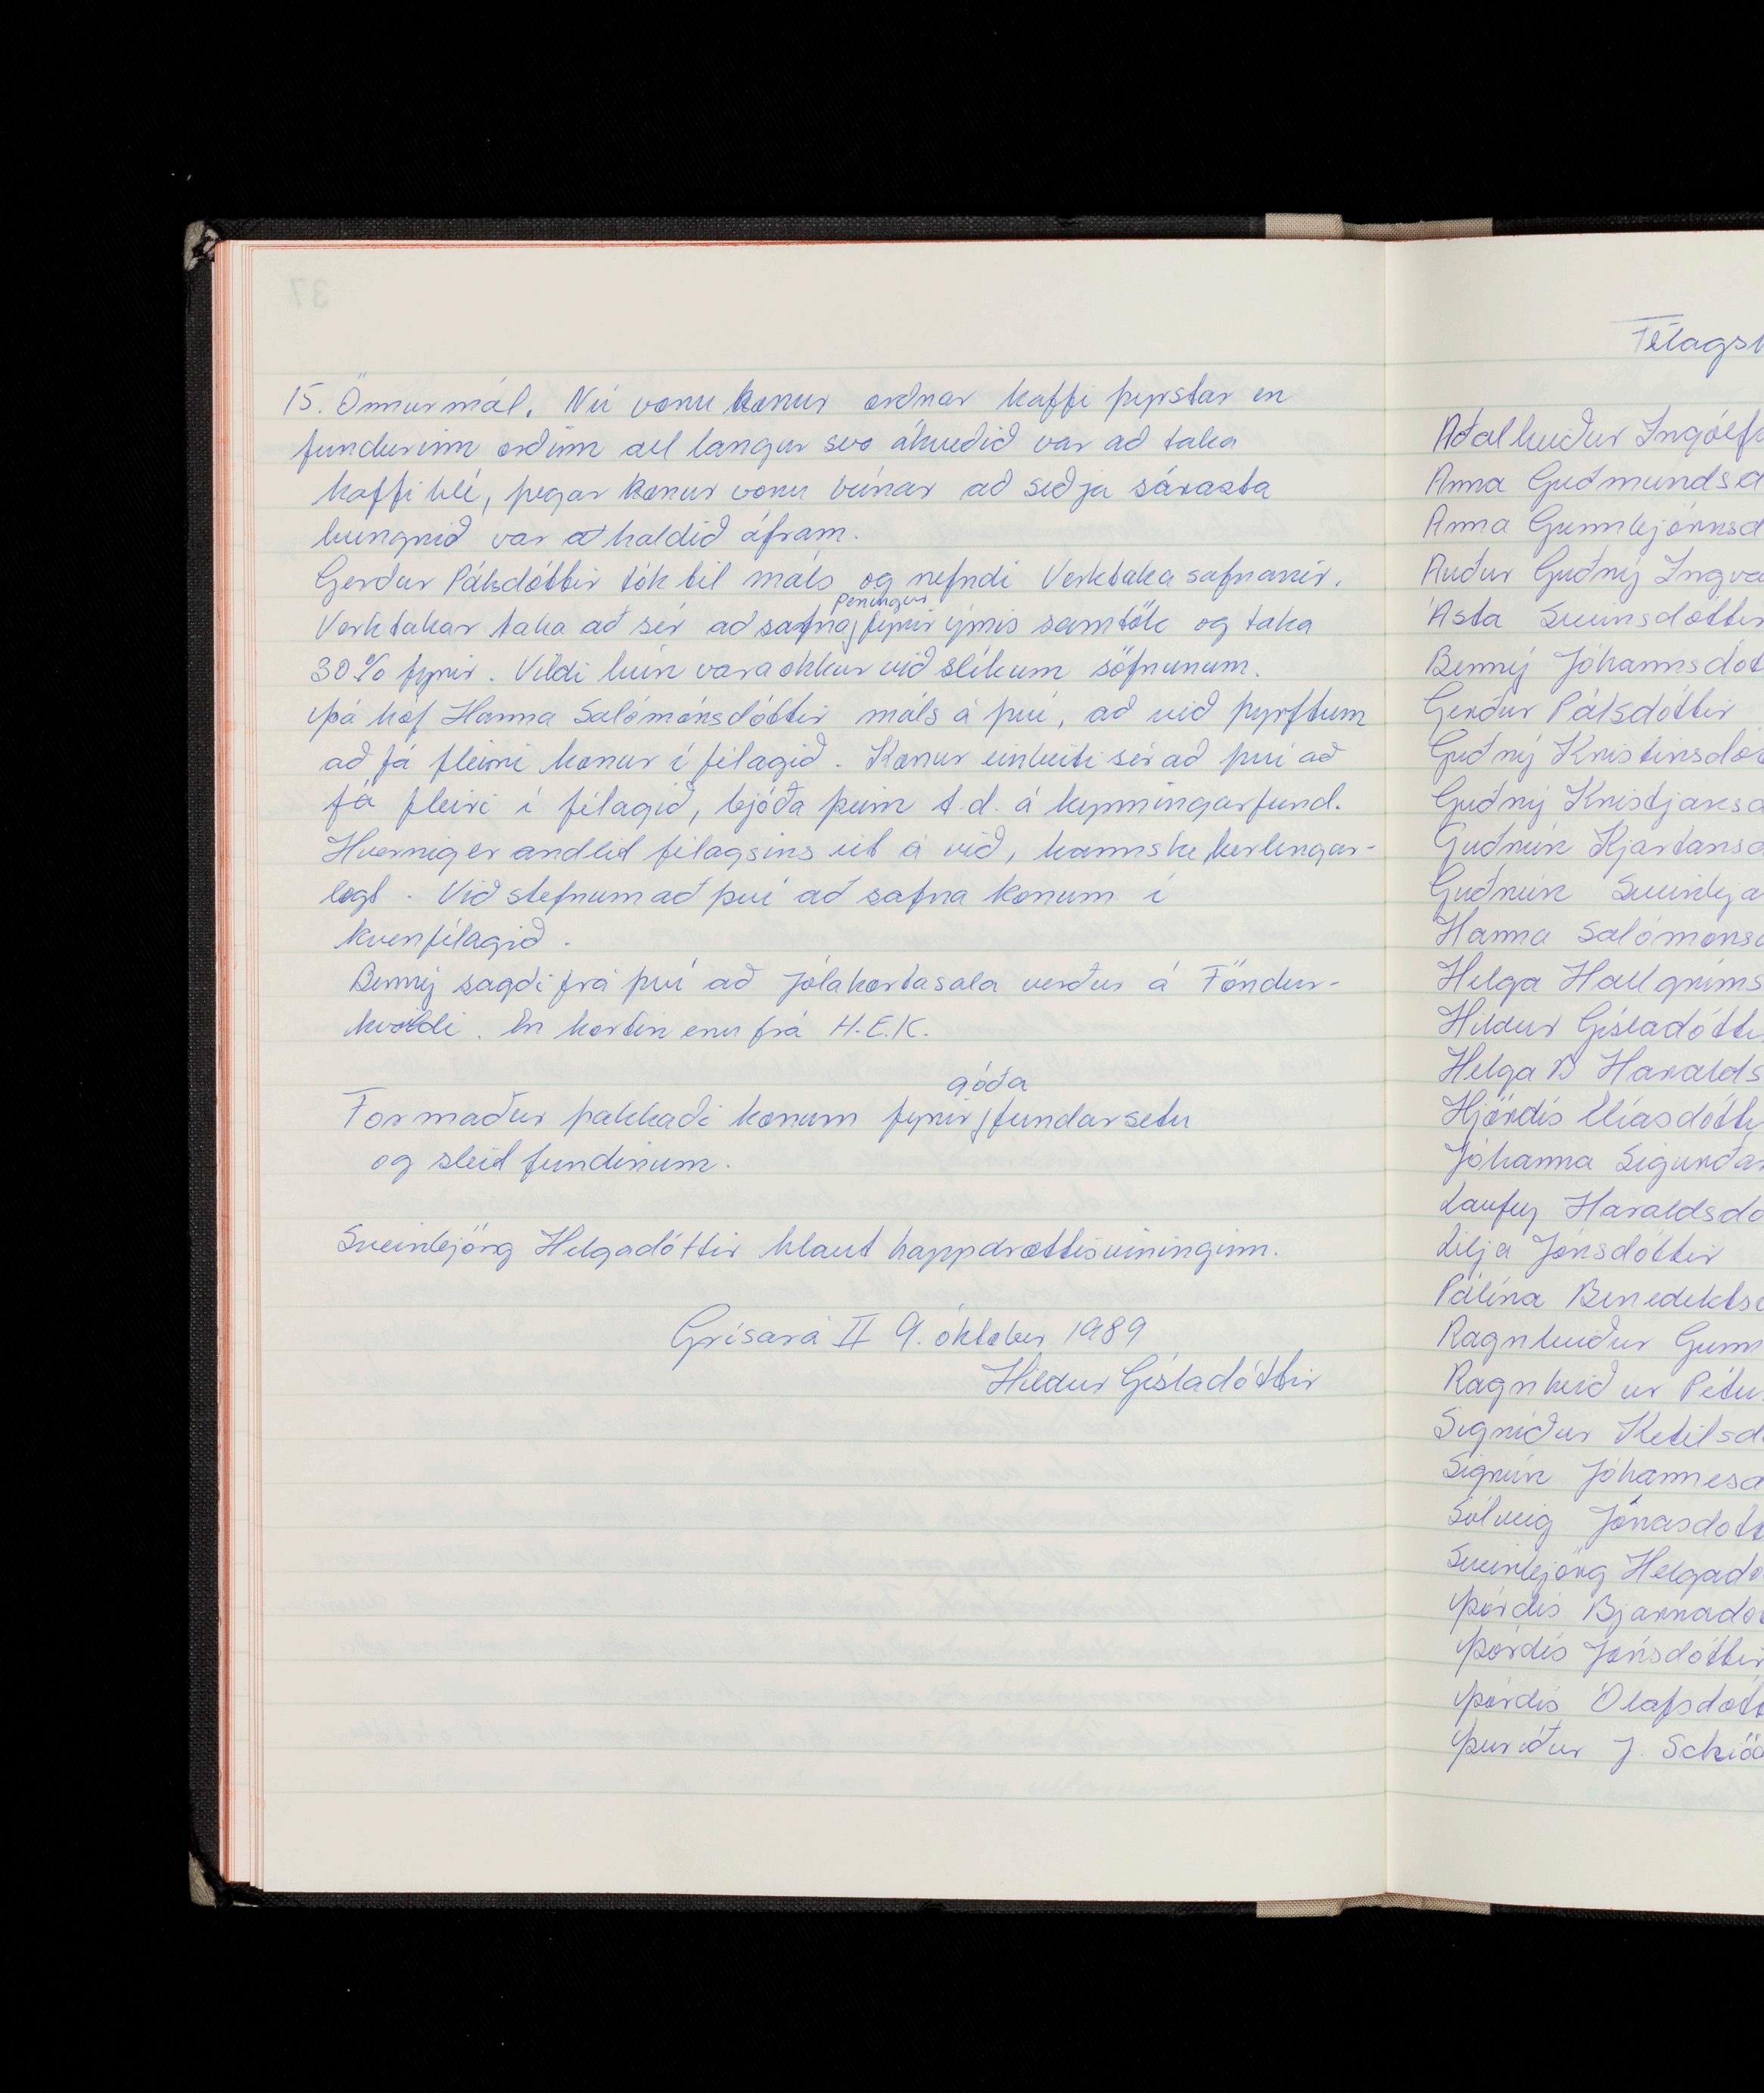 37
15. Önnurmál. Nú voru konur orðnar kaffi þyrstar en
fundurinn orðinn all langur svo ákveðið var að taka
kaffihlé, þegar konur voru búnar að seðja sárasta
hungrið var haldið áfram.
Gerður Pálsdóttir tók til máls og nefndi Verktaka safnanir.
Peningur
Verktakar taka að sér að safna fyrir ýmis samtök og taka
30% fyrir. Vildi hún vara okkur við slíkum söfnunum.
Þá hóf Hanna Salómónsdóttir máls á því, að við þyrftum
að fá fleirri konur í félagið. Konur einbeiti sér að því að
fá fleiri í félagið, bjóða þeim t.d. á kynningarfund.
Hvernig er andlit félagsins út á við, kannske kerlingar-
legt. Við stefnum að því að safna konum í
kvenfélagið.
Benný sagði frá því að Jólakortasala verður á Föndur-
kvöldi. En kortin eru frá H.E.K.
góða
Formaður þakkaði konum fyrir fundarsetu
og sleit fundinum.
Sveinbjörg Helgadóttir hlaut happdrættisvininginn.
Grísará II 9. óktober 1989
Hildur Gísladóttir
Félagsk
Aðalheiður Ingólfs
Anna Guðmundsd
Anna Gunnbjörnsd
Auður Guðný Ingva
Ásta Sveinsdóttir
Benný Jóhannsdót
Gerður Pálsdóttir
Guðný Kristinsdót
Guðný Kristjánsd
Guðrún Kjartansd
Guðrún Sveinbja
Hanna Salómonsd
Helga Hallgríms
Hildur Gísladótti
Helga B Haralds
Hjördís Elíasdótti
Jóhanna Sigurðar
Laufey Haraldsdó
Lilja Jónsdóttir
Pálína Benediktsd
Ragnheiður Gunn
Ragnheiður Pétu
Sigríður Ketilsd
Sigrún Jóhannesd
Sólveig Jónasdótt
Sveinbjörg Helgadó
Þórdís Bjarnadót
Þórdís Jónsdóttir
Þórdís Ólafsdótt
Þuríður J. Schiöð